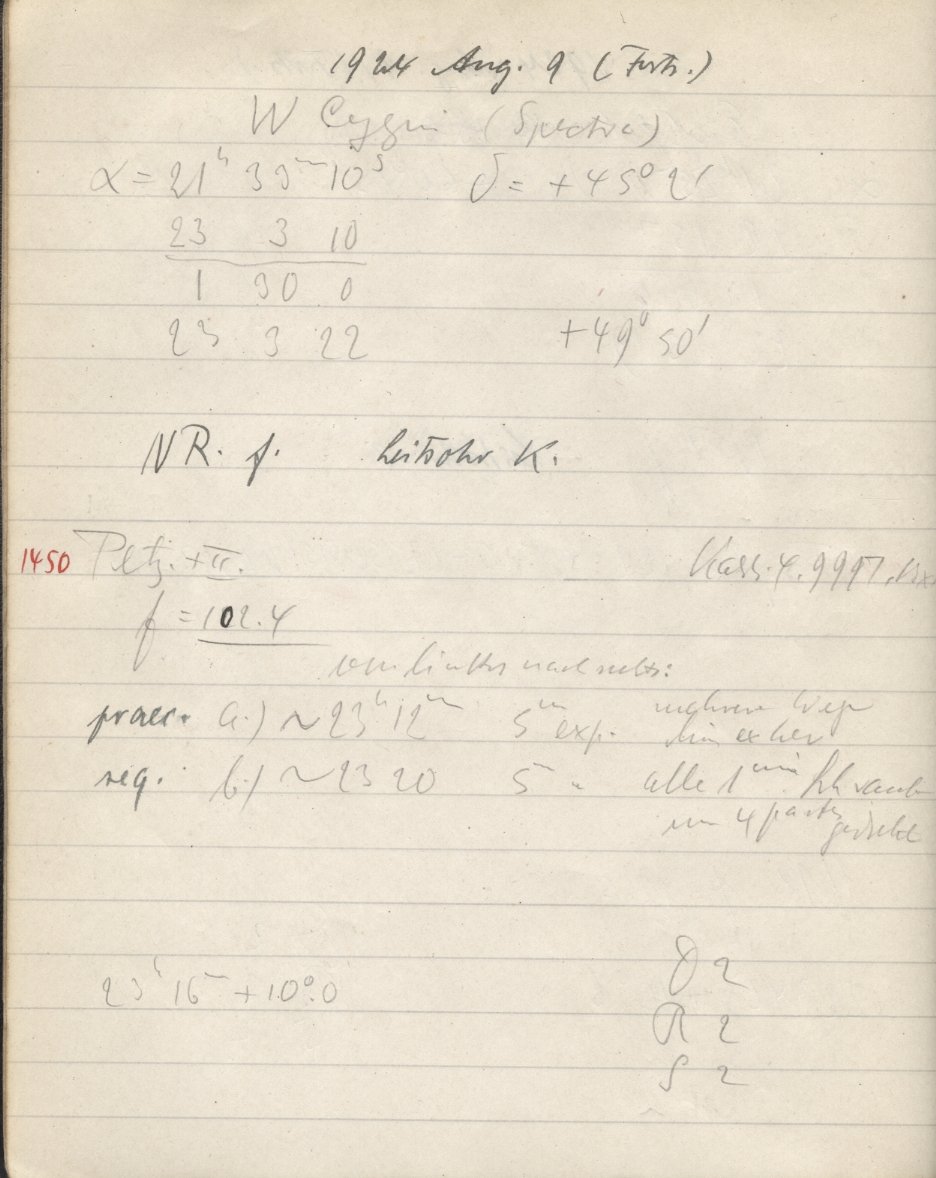 1924 Aug. 9 (Forts.)
W Cygni (Spectra)
α = 21ʰ 33ᵐ 10ˢ δ = +45° 2'
23 3 10
1 30 0
23 3 22 +49° 50'
NR. f. Leitrohr K.
1450 Petz. + II. Kass. 4.
f = 102.4
von links nach rechts:
praec. a.) ~ 23ʰ 12ᵐ 5ᵐ exp. mehrere Wege
hin & her
seq. b.) ~ 23 20 5 " alle 1ᵐⁱⁿ
um 4 partes gedreht
23ʰ 16ᵐ + 10°.0
D 2
R 2
S 2